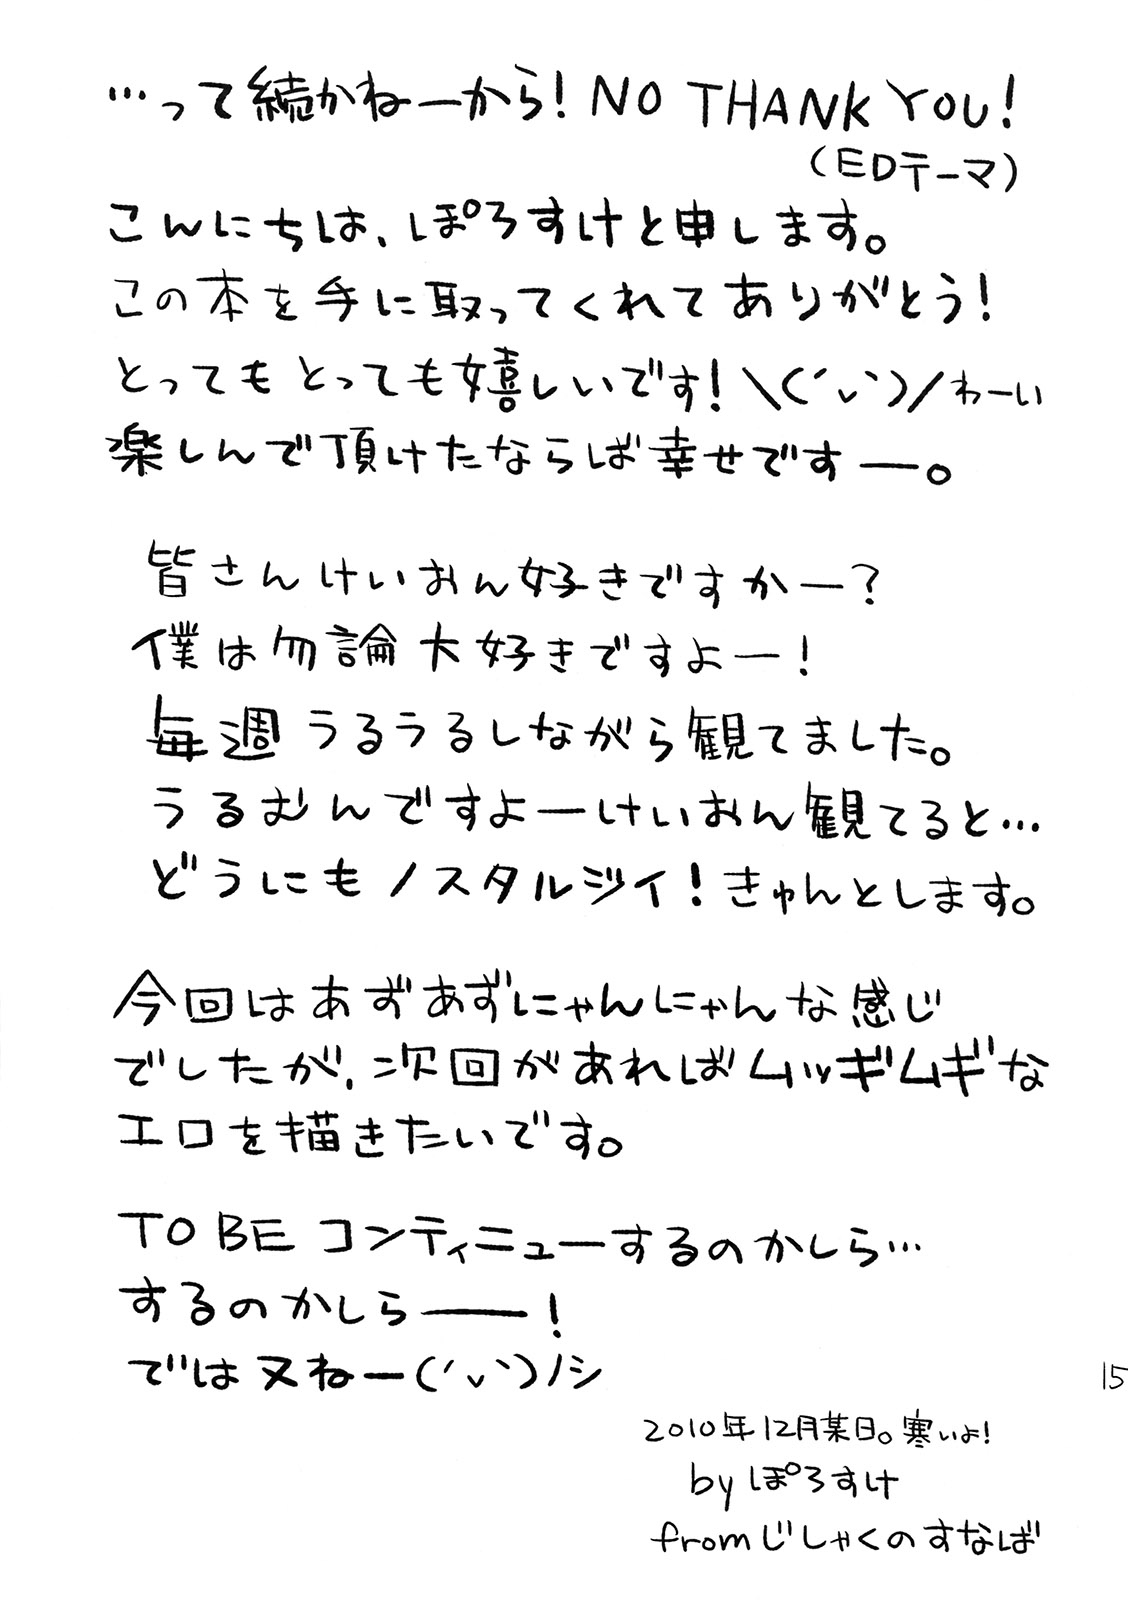 …って続かねーから！NO THANK YOU！
（EDテーマ）
こんにちは、ぽろすけと申します。
この本を手に取ってくれてありがとう！
とってもとっても嬉しいです！＼(´ヮ`)／わーい
楽しんで頂けたならば幸せですー。
皆さんけいおん好きですかー？
僕は勿論大好きですよー！
毎週うるうるしながら観てました。
うるむんですよーけいおん観てると…
どうにもノスタルジイ！きゅんとします。
今回はあずあずにゃんにゃんな感じ
でしたが、次回があればムッギムギな
エロを描きたいです。
TO BE コンティニューするのかしら…
するのかしら――！
では又ねー(´ヮ`)ノシ
15
2010年12月某日。寒いよ！
by ぽろすけ
from じしゃくのすなば